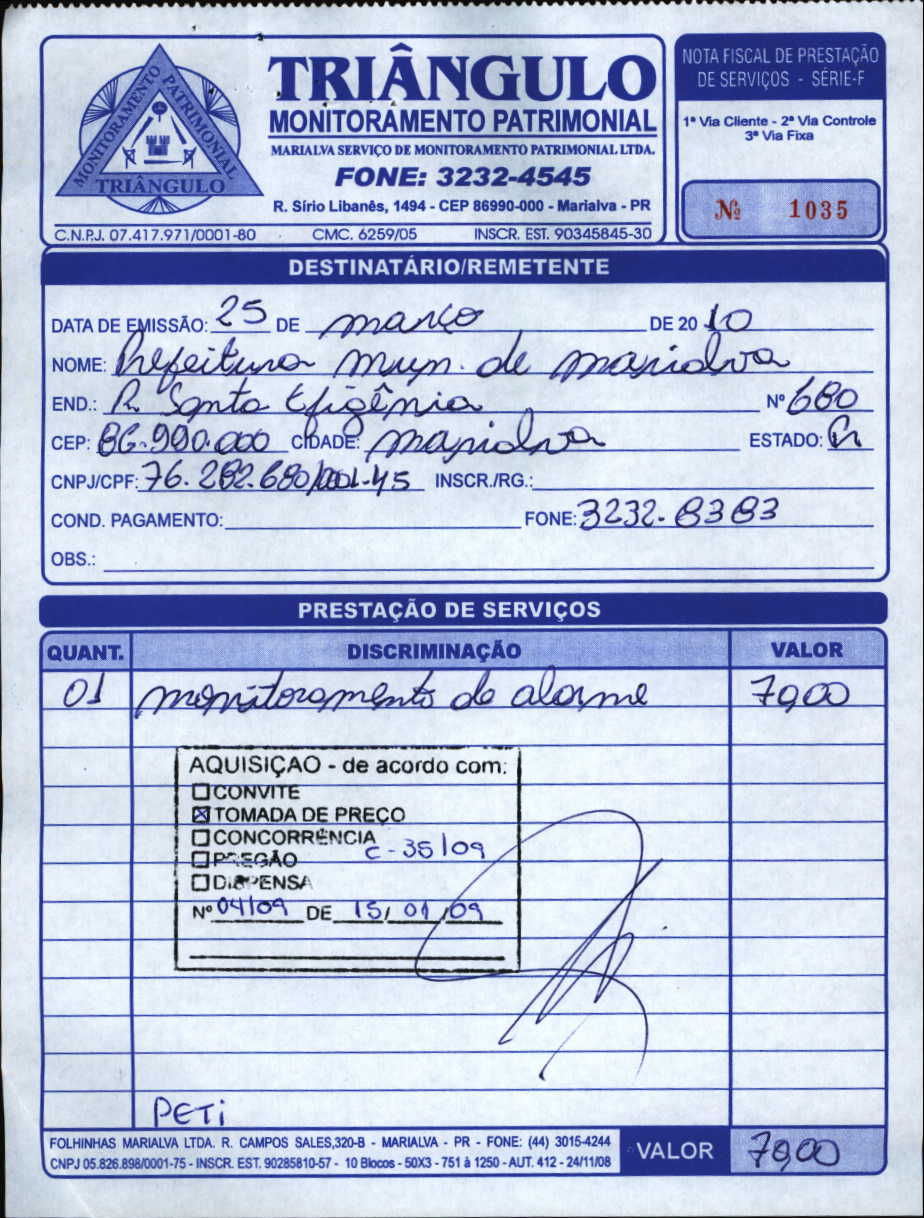 MONITORAMENTO PATRIMONIAL
TRIÂNGULO
TRIÂNGULO
MONITORAMENTO PATRIMONIAL
MARIALVA SERVIÇO DE MONITORAMENTO PATRIMONIAL LTDA.
FONE: 3232-4545
R. Sírio Libanês, 1494 - CEP 86990-000 - Marialva - PR
C.N.P.J. 07.417.971/0001-80 CMC. 6259/05 INSCR. EST. 90345845-30
NOTA FISCAL DE PRESTAÇÃO
DE SERVIÇOS - SÉRIE-F
1ª Via Cliente - 2ª Via Controle
3ª Via Fixa
Nº 1035
DESTINATÁRIO/REMETENTE
DATA DE EMISSÃO: 25 DE março DE 2010
NOME: Prefeitura mun. de marialva
END.: R. Santa Efigênia Nº 680
CEP: 86.990.000 CIDADE: marialva ESTADO: Pr
CNPJ/CPF: 76.282.680/0001-45 INSCR./RG.:
COND. PAGAMENTO: FONE: 3232-8383
OBS.:
PRESTAÇÃO DE SERVIÇOS
QUANT. DISCRIMINAÇÃO VALOR
01 monitoramento de alarme 79,00
AQUISIÇAO - de acordo com:
CONVITE
TOMADA DE PREÇO
CONCORRÊNCIA
PREGÃO C-35/09
DISPENSA
Nº 04/09 DE 15/01/09
PETi
FOLHINHAS MARIALVA LTDA. R. CAMPOS SALES,320-B - MARIALVA - PR - FONE: (44) 3015-4244
CNPJ 05.826.898/0001-75 - INSCR. EST. 90285810-57 - 10 Blocos - 50X3 - 751 à 1250 - AUT. 412 - 24/11/08
VALOR 79,00